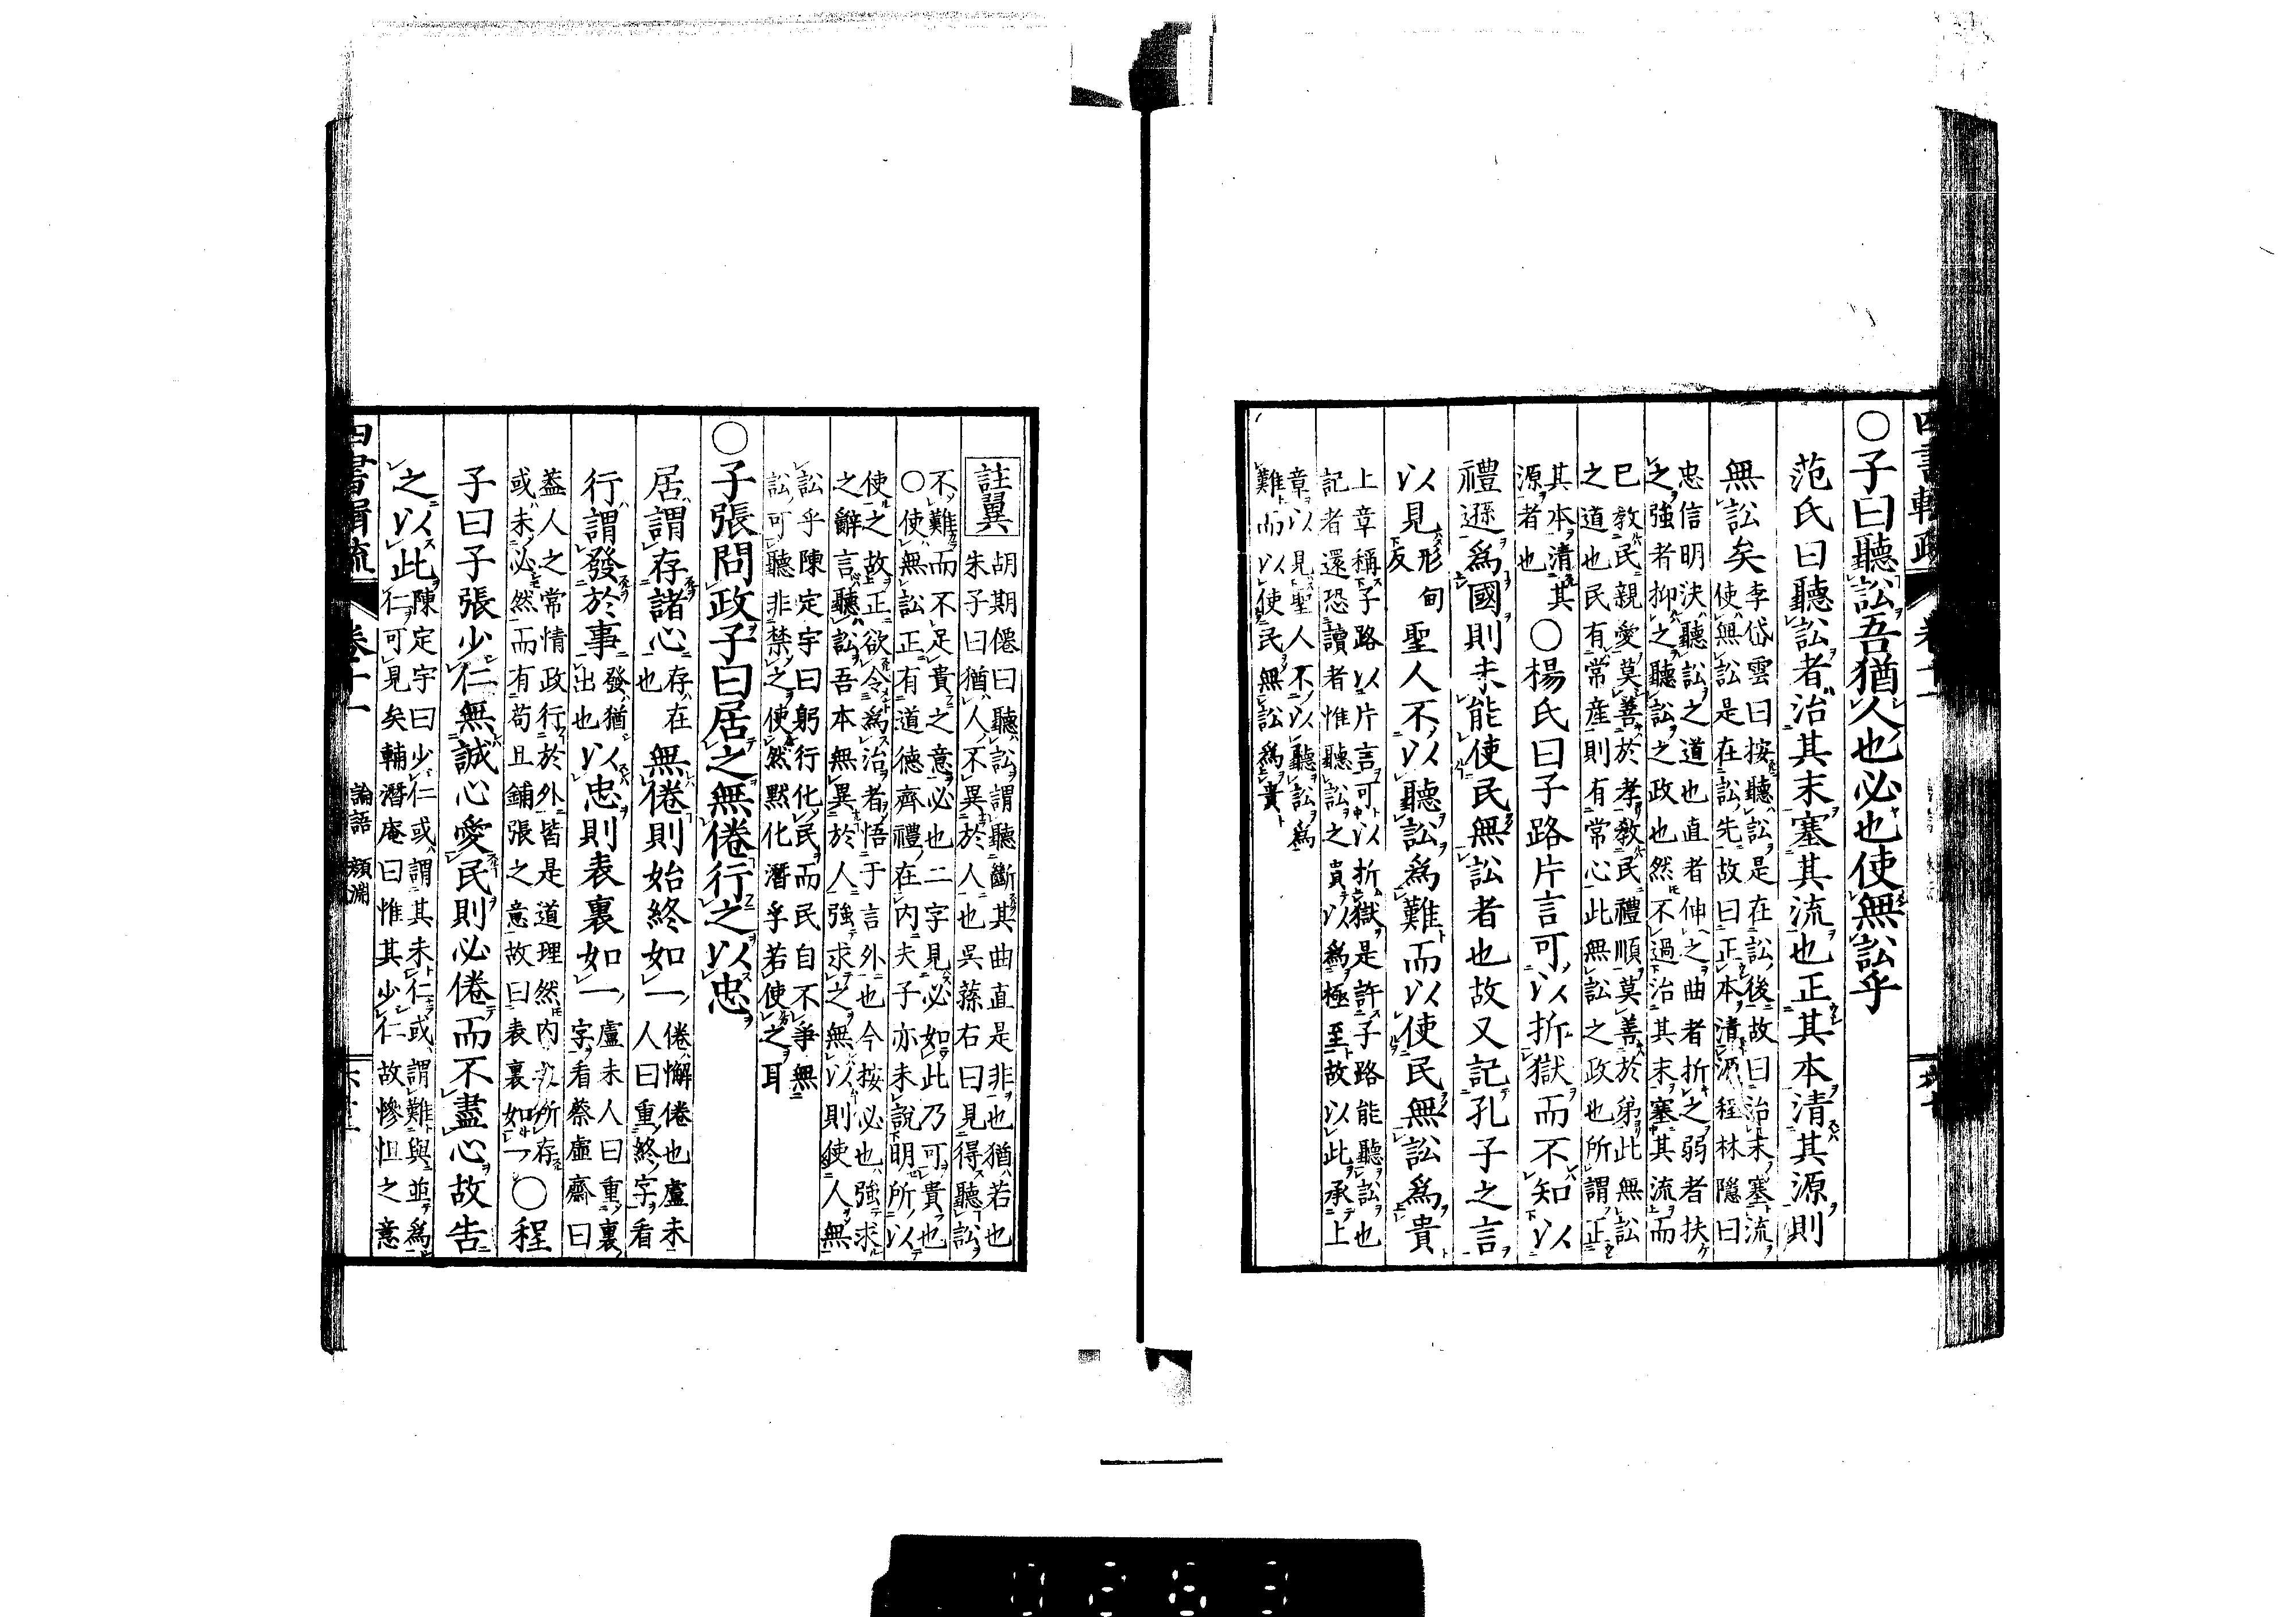 ○子曰聽訟吾猶人也必也使無訟乎
范氏曰聽訟者治其末塞其流也正其本清其源則
無訟矣
李岱雲曰按聽訟是在訟後故曰治末塞流
使無訟是在訟先故曰正本清源程林隠曰
忠信明決聽訟之道也直者伸之曲者折之弱者扶
之強者抑之聽訟之政也然不過治其末塞其流而
已教民親愛莫善於孝教民禮順莫善於弟此無訟
之道也民有常産則有常心此無訟之政也所謂正
其本清其
源者也
○楊氏曰子路片言可以折獄而不知以
禮遜爲國則未能使民無訟者也故又記孔子之言
以見
形甸
反
聖人不以聽訟爲難而以使民無訟爲貴
上章稱子路以片言可以折獄是許子路能聽訟也
記者還恐讀者惟聽訟之貴以爲極至故以此承上
章以見聖人不以聽訟爲
難而以使民無訟爲貴
註翼
胡期僊曰聽訟謂聽斷其曲直是非也猶若也
朱子曰猶人不異於人也吳蓀右曰見得聽訟
不難而不足貴之意必也二字見必如此乃可貴也
○使無訟正有道德齊禮在内夫子亦未說明所以
使之故正欲令爲治者悟于言外也今按必也強求
之辭言聽訟吾本無異於人強求之無以則使人無
訟乎陳定宇曰躬行化民而民自不爭無
訟可聽非禁之使然默化潛孚若使之耳
○子張問政子曰居之無倦行之以忠
居謂存諸心
存在
也
無倦則始終如一
倦懈倦也盧未
人曰重終字看
行謂發於事
發猶
出也
以忠則表裏如一
盧未人曰重裏
字看蔡虛齋曰
蓋人之常情政行於外皆是道理然内之所存
或未必然而有苟且鋪張之意故曰表裏如一
○程
子曰子張少仁無誠心愛民則必倦而不盡心故告
之以此
陳定宇曰少仁或謂其未仁或謂難與並爲
仁可見矣輔潛庵曰惟其少仁故慘怛之意
四書輯疏
卷十一
論語 顔淵